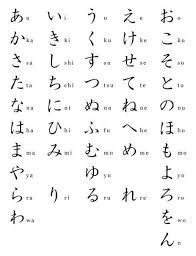 あa いi うu えe おo
かka きki くku けke こko
さsa しshi すsu せse そso
たta ちchi つtsu てte とto
なna にni ぬnu ねne のno
はha ひhi ふfu へhe ほho
まma みmi むmu めme もmo
やya ゆyu よyo
らra りri るru れre ろro
わwa をwo
んn